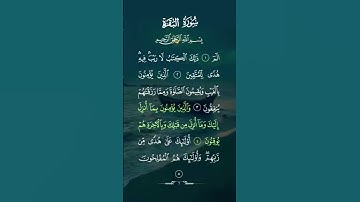 سُورَةُ البَقَرَةِ
بِسْمِ اللَّهِ الرَّحْمَٰنِ الرَّحِيمِ
الٓمٓ ١ ذَٰلِكَ ٱلْكِتَٰبُ لَا رَيْبَ ۛ فِيهِ ۛ
هُدًى لِّلْمُتَّقِينَ ٢ ٱلَّذِينَ يُؤْمِنُونَ
بِٱلْغَيْبِ وَيُقِيمُونَ ٱلصَّلَوٰةَ وَمِمَّا رَزَقْنَٰهُمْ
يُنفِقُونَ ٣ وَٱلَّذِينَ يُؤْمِنُونَ بِمَآ أُنزِلَ
إِلَيْكَ وَمَآ أُنزِلَ مِن قَبْلِكَ وَبِٱلْءَاخِرَةِ هُمْ
يُوقِنُونَ ٤ أُو۟لَٰٓئِكَ عَلَىٰ هُدًى مِّن
رَّبِّهِمْ ۖ وَأُو۟لَٰٓئِكَ هُمُ ٱلْمُفْلِحُونَ
٥